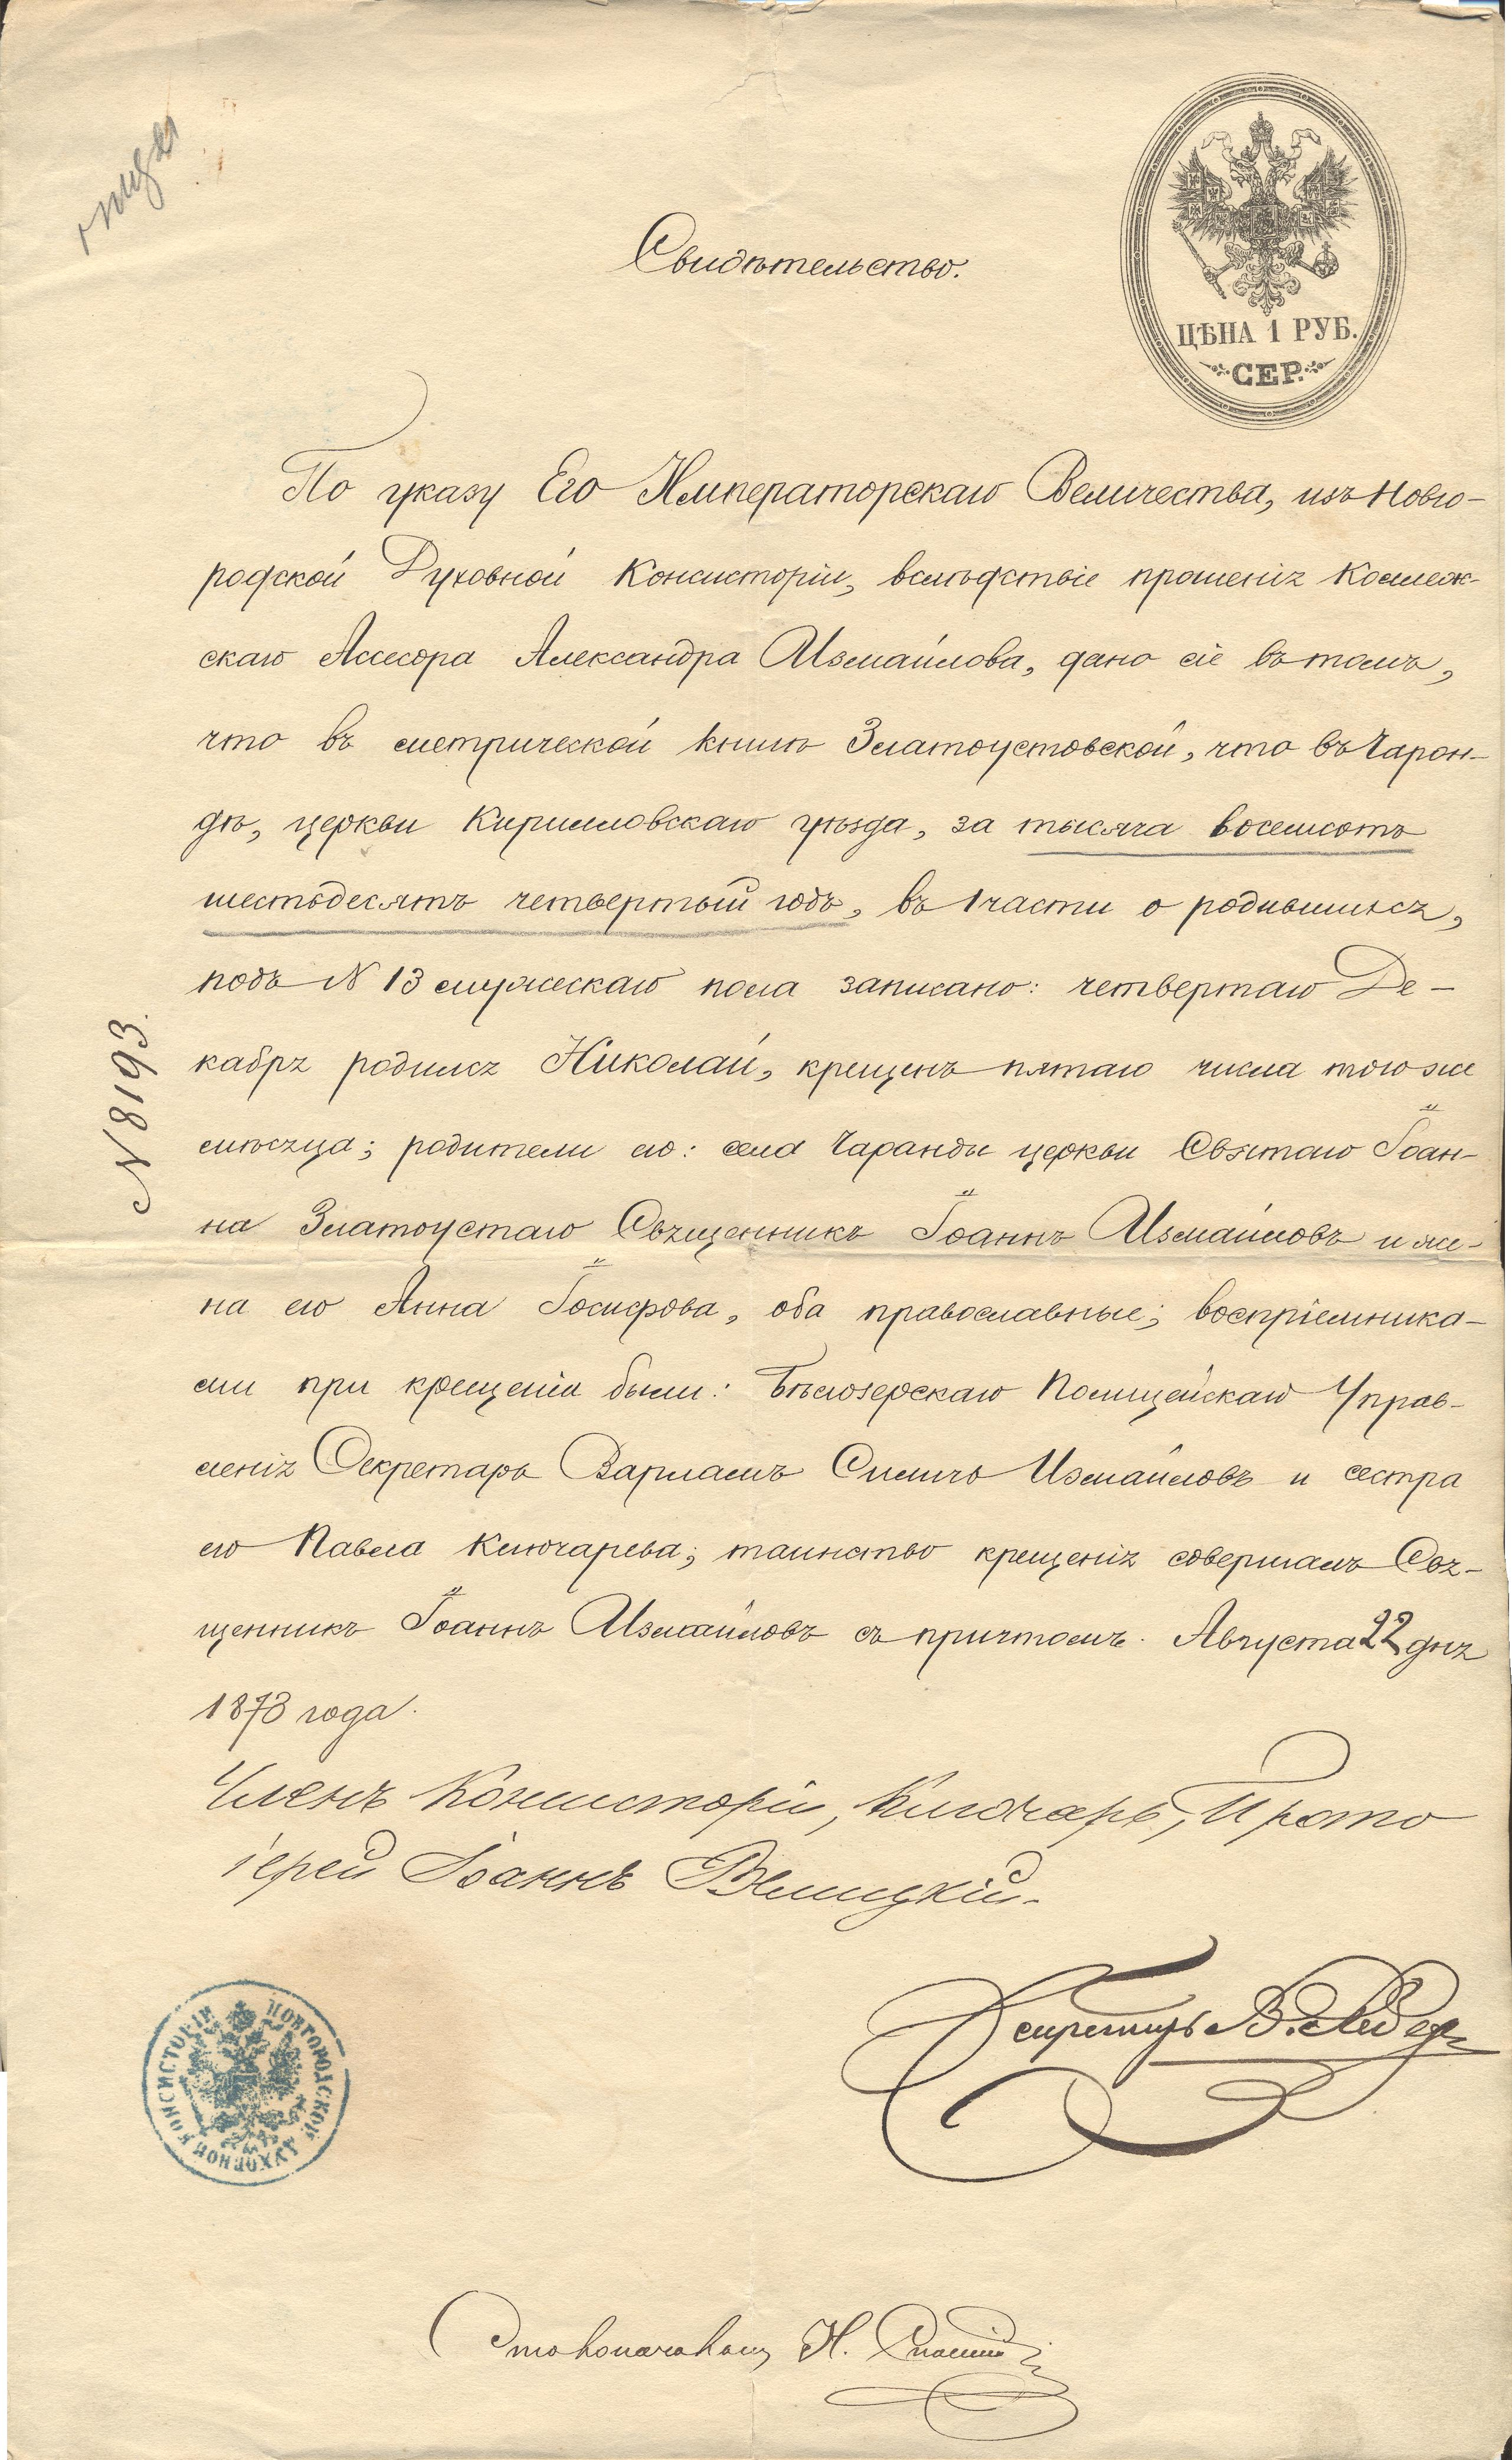 Свидѣтельство.
ЦѢНА 1 РУБ.
СЕР.
По указу Его Императорскаго Величества, изъ Новго-
родской Духовной Консисторіи, вслѣдствіе прошенія Коллеж-
скаго Ассесора Александра Измайлова, дано сіе въ томъ,
что въ метрической книгѣ Златоустовской, что въ Чарон-
дѣ, церкви Кирилловскаго уѣзда, за тысяча восемсотъ
шестьдесятъ четвертый годъ, въ 1 части о родившихся,
подъ № 13 мужескаго пола записано: четвертаго Де-
кабря родился Николай, крещенъ пятаго числа того же
мѣсяца; родители его: села Чаронды церкви Святаго Іоан-
на Златоустаго Священникъ Іоаннъ Измайловъ и же-
на его Анна Іосифова, оба православные; воспріемника-
ми при крещеніи были: Бѣлозерскаго Полицейскаго Управ-
ленія Секретарь Варлаамъ Измайловъ и сестра
его Павла Ключарева; таинство крещенія совершалъ Свя-
щенникъ Іоаннъ Измайловъ съ причтомъ. Августа 22 дня
1873 года.
№ 8193.
Членъ Консисторіи, Ключарь, Прото
іерей Іоаннъ
Секретарь В.
НОВГОРОДСКОЙ ДУХОВНОЙ КОНСИСТОРІИ
Столоначальникъ Н.